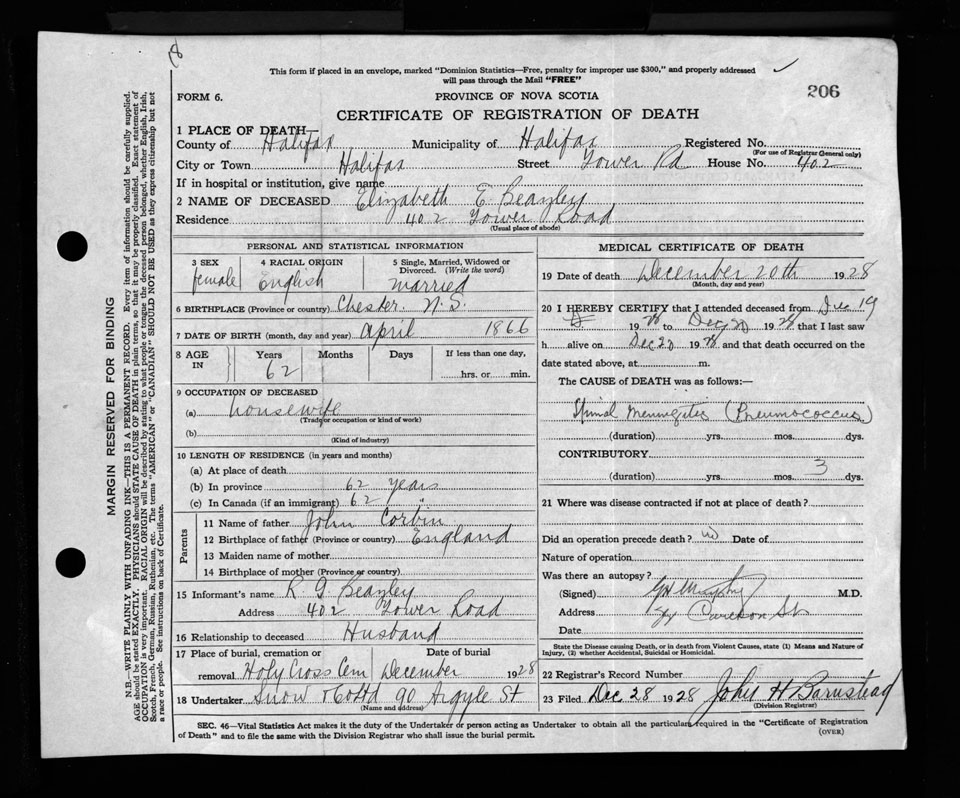 8
This form if placed in an envelope, marked "Dominion Statistics—Free, penalty for improper use $300," and properly addressed
will pass through the Mail "FREE"
206
FORM 6.
PROVINCE OF NOVA SCOTIA
CERTIFICATE OF REGISTRATION OF DEATH
1 PLACE OF DEATH—
County of Halifax Municipality of Halifax Registered No.
(For use of Registrar General only)
City or Town Halifax Street Tower Rd House No. 402
If in hospital or institution, give name
2 NAME OF DECEASED Elizabeth E. Beazley
Residence 402 Tower Road
(Usual place of abode)
PERSONAL AND STATISTICAL INFORMATION
3 SEX female
4 RACIAL ORIGIN English
5 Single, Married, Widowed or Divorced. (Write the word) married
6 BIRTHPLACE (Province or country) Chester. N.S.
7 DATE OF BIRTH (month, day and year) April 1866
8 AGE IN Years 62 Months Days If less than one day, hrs. or min.
9 OCCUPATION OF DECEASED
(a) housewife
(Trade or occupation or kind of work)
(b)
(Kind of industry)
10 LENGTH OF RESIDENCE (in years and months)
(a) At place of death
(b) In province 62 years
(c) In Canada (if an immigrant) 62
Parents
11 Name of father John Corbin
12 Birthplace of father (Province or country) England
13 Maiden name of mother
14 Birthplace of mother (Province or country)
15 Informant's name R G Beazley
Address 402 Tower Road
16 Relationship to deceased Husband
17 Place of burial, cremation or removal Holy Cross Cem
Date of burial December 1928
18 Undertaker Snow & Co Ltd 90 Argyle St
(Name and address)
MEDICAL CERTIFICATE OF DEATH
19 Date of death December 20th 1928
(Month, day and year)
20 I HEREBY CERTIFY that I attended deceased from Dec 19
1928 to Dec 20 1928 that I last saw
h alive on Dec 20 1928 and that death occurred on the
date stated above, at m.
The CAUSE of DEATH was as follows:—
Spinal Meningitis (Pneumococcus)
(duration) yrs. mos. dys.
CONTRIBUTORY
(duration) yrs. mos. 3 dys.
21 Where was disease contracted if not at place of death?
Did an operation precede death? no Date of
Nature of operation
Was there an autopsy?
(Signed) Murphy M.D.
Address Carleton St
Date
State the Disease causing Death, or in death from Violent Causes, state (1) Means and Nature of
Injury, (2) whether Accidental, Suicidal or Homicidal.
22 Registrar's Record Number
23 Filed Dec 28 1928 John H Barnstead
(Division Registrar)
SEC. 46—Vital Statistics Act makes it the duty of the Undertaker or person acting as Undertaker to obtain all the particulars required in the "Certificate of Registration
of Death" and to file the same with the Division Registrar who shall issue the burial permit.
(OVER)
MARGIN RESERVED FOR BINDING
N.B.—WRITE PLAINLY WITH UNFADING INK—THIS IS A PERMANENT RECORD. Every item of information should be carefully supplied.
AGE should be stated EXACTLY. PHYSICIANS should STATE CAUSE OF DEATH in plain terms, so that it may be properly classified. Exact statement of
OCCUPATION is very important. RACIAL ORIGIN will be described by stating to what people or tongue the deceased person belonged, whether English, Irish,
Scotch, French, German, Russian, Ruthenian, etc. The terms "AMERICAN" or "CANADIAN" SHOULD NOT BE USED as they express citizenship but not
a race or people. See instructions on back of Certificate.